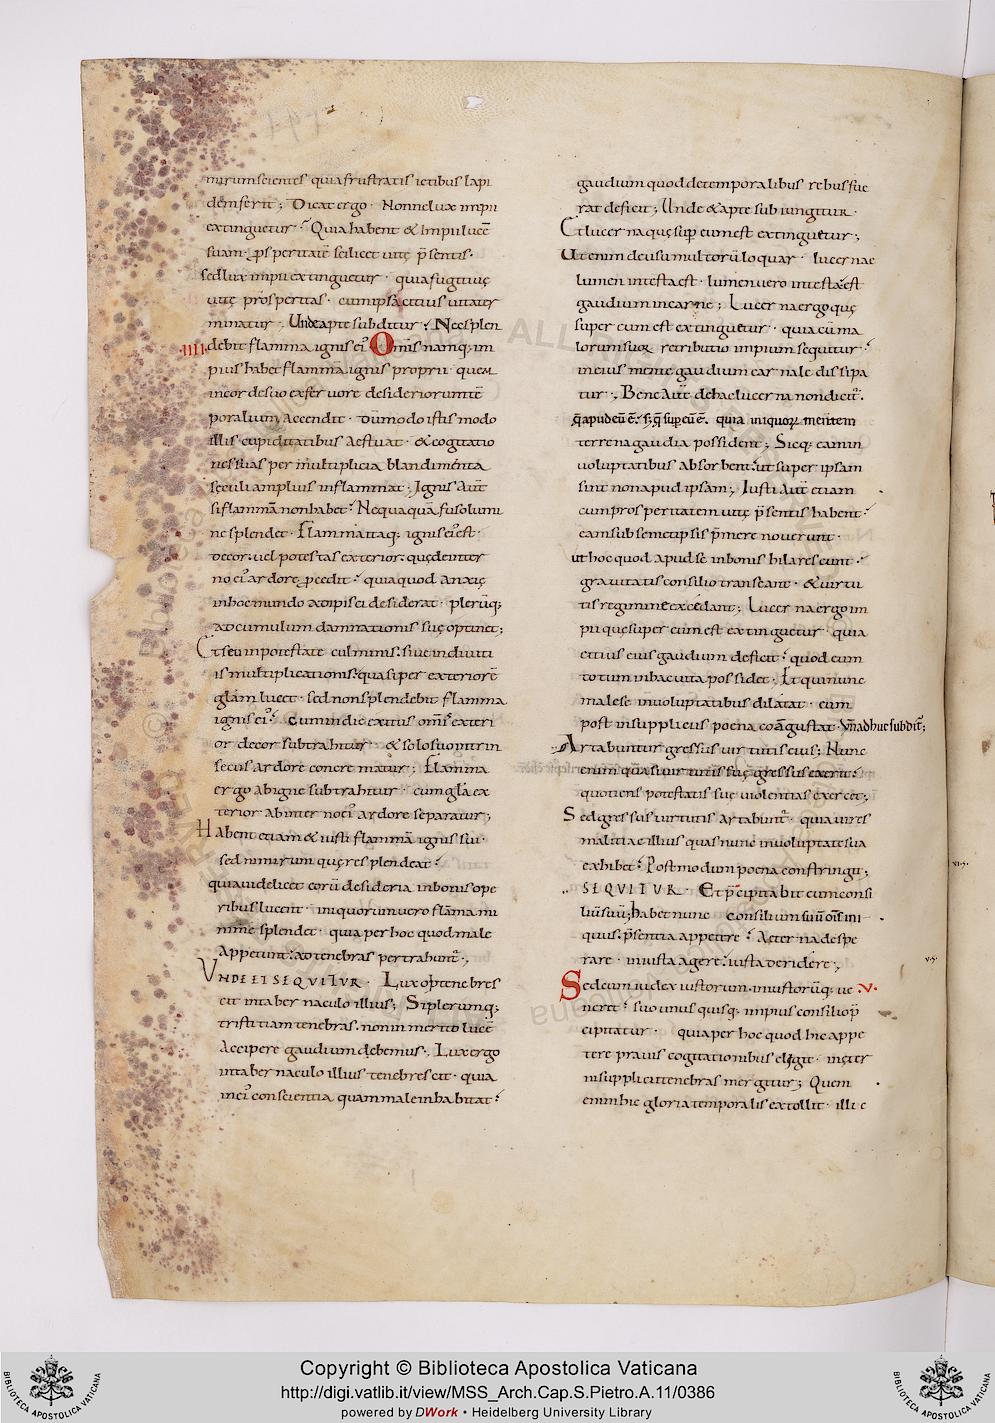 mirum scientes quia frustratis ictibus lapi
dem ferit; Dicat ergo. Nonne lux impii
extinguetur? Quia habent & impii lucē
suam. ꝓsperitatē scilicet uitę p̄sentis.
sed lux impii extinguetur. quia fugitiuę
uitę prosperitas. cum ipsa citius uita ter
minatur. Unde apte subditur; Nec splen
.IIII. debit flamma ignis ei'. Omīs namq; im
pius habet flammā ignis proprii. quem
in corde suo ex feruore desideriorum tē
poralium accendit. dū modo istis modo
illis cupiditatibus aestuat. & cogitatio
nes suas per multiplicia blandimenta
sęculi amplius inflammat; Ignis aut̄
si flammā non habet? Nequaquā fuso lumi
ne splendet. Flamma itaq; ignis ei' est.
decor. uel potestas exterior. quę de inter
no ei' ardore ꝓcedit? quia quod anxię
in hoc mundo adipisci desiderat. plerūq;
ad cumulum damnationis suę optinet;
Et seu in potestate culminis. siue in diuiti
is multiplicationis. quasi per exteriorē
glām lucet. sed non splendebit flamma
ignis ei'? cum in die exitus omīs exteri
or decor subtrahitur. & solo suo intrin
secus ardore concrematur; Flamma
ergo ab igne subtrahitur. cum glā ex
terior ab interno ei' ardore separatur;
Habent etiam & iusti flammā ignis sui.
sed nimirum quę resplendeat?
quia uidelicet eorū desideria in bonis ope
ribus lucent. iniquorum uero flāma mi
nime splendet. quia per hoc quod male
appetunt? ad tenebras pertrahunt̄.
VNDE ET SEQVITVR. Lux obtenebres
cit in tabernaculo illius; Si plerumq;
tristitiam tenebras. non inmerito lucē
accipere gaudium debemus. Lux ergo
in tabernaculo illius tenebrescit. quia
in ei' conscientia quam male inhabitat?
gaudium quod de temporalibus rebus fue
rat deficit; Unde & apte subiungitur.
Et lucerna quę sup eum est extinguetur;
Ut enim de usu multorū loquar. lucernae
lumen in testa est. lumen uero in testa est
gaudium in carne; Lucerna ergo quę
super eum est extinguetur. quia cū ma
lorum suoꝝ retributio impium sequitur?
in eius mente gaudium carnale dissipa
tur. Bene aut̄ de hac lucerna non dicit̄.
q̄ apud eū ē. s; q̄ sup eū ē. quia iniquoꝝ mentem
terrena gaudia possident; Sicq; eam in
uoluptatibus absorbent. ut super ipsam
sint non apud ipsam; Iusti aut̄ etiam
cum prosperitatem uitę p̄sentis habent?
eam sub semetipsis p̄mere nouerunt.
ut hoc quod apud se in bonis hilarescunt?
grauitatis consilio transeant. & uirtu
tis regimine excedant; Lucerna ergo im
pii quę super eum est extinguetur. quia
citius eius gaudium deficit? quod cum
totum in hac uita possidet. Et qui nunc
male se in uoluptatibus dilatat. eum
post in suppliciis poena coangustat. Vn̄ adhuc subdit̄;
Artabuntur gressus uirtutis eius; Nunc
enim quasi uirtutis suę gressus exerit?
quotiens potestatis suę uiolentias exercet;
Sed gressus uirtutis artabunt̄. quia uires
malitiae illius quas nunc in uoluptate sua
exhibet? Postmodum poena constringit;
SEQVITVR. Et p̄cipitabit eum consi
liū suū; habet nunc consilium suū om̄is ini
quus. p̄sentia appetere? aeterna despe
rare. iniusta agere? iusta deridere;
Sed cum iudex iustorum iniustorūq; ue .V.
nerit? suo unusquisq; impius consilio p̄
cipitatur. quia per hoc quod hic appe
tere prauis cogitationibus elegit. in ęter
ni supplicii tenebras mergitur; Quem
enim hic gloria temporalis extollit. illic
Copyright © Biblioteca Apostolica Vaticana
http://digi.vatlib.it/view/MSS_Arch.Cap.S.Pietro.A.11/0386
powered by DWork • Heidelberg University Library
BIBLIOTECA APOSTOLICA VATICANA
BIBLIOTECA APOSTOLICA VATICANA